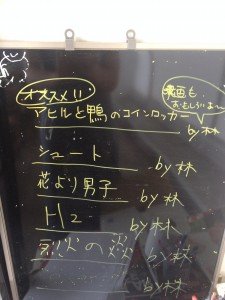 オススメ!!
映画も
おもしろいよー
アヒルと鴨のコインロッカー
by 林
シュート
by 林
花より男子
by 林
H2
by 林
烈火の炎
by 林
by 林